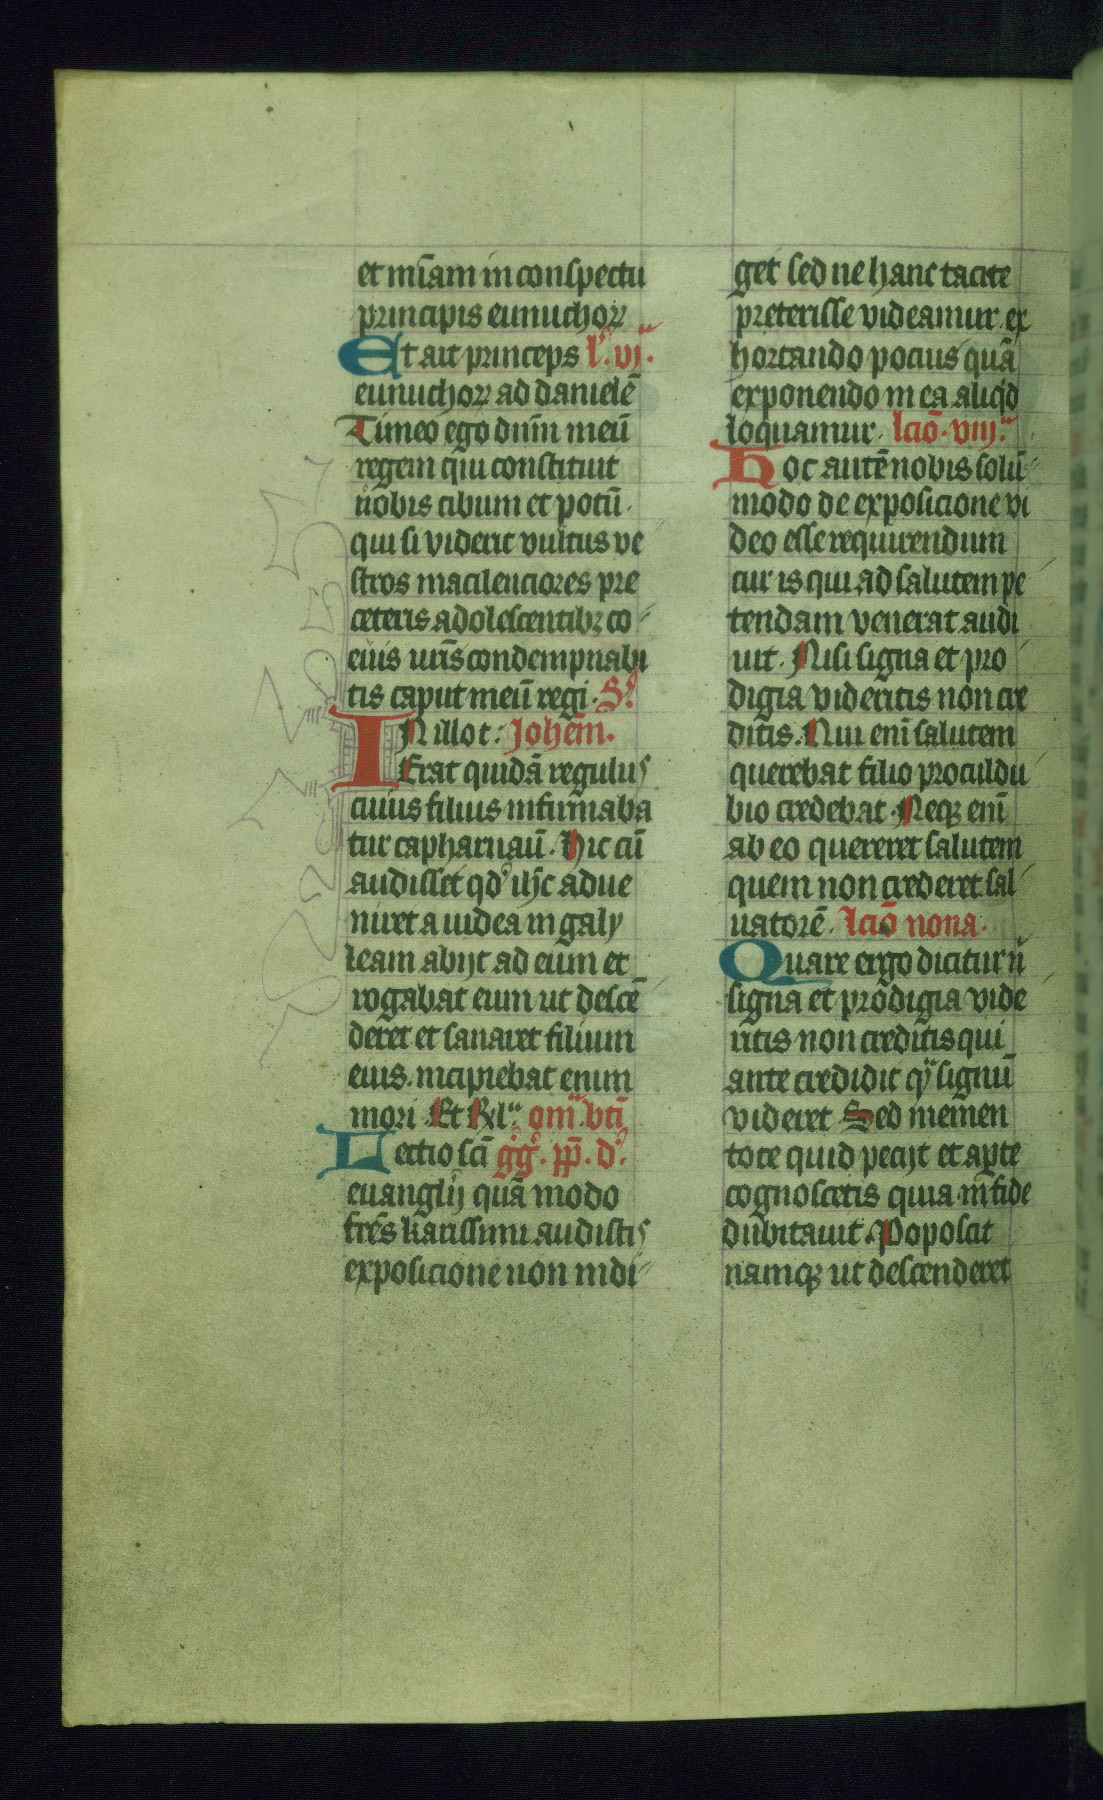 et mīam in conspectu
principis eunuchoꝝ
Et ait princeps l̓. vj.
eunuchoꝝ ad danielē
Timeo ego dn̄m meū
regem qui constituit
uobis cibum et potū.
qui si viderit vultus ve
stros macilenciores pre
ceteris adolescentibꝫ co
euis ur̄is condempnabi
tis caput meū regi. S̓.
IN illo t̓. Johēm.
Erat quidā regulus
cuius filius infirmaba
tur capharnaū. Hic cū
audisset qd̓ ih̄c adue
niret a iudea in galy
leam abijt ad eum et
rogabat eum ut descē
deret et sanaret filium
eius. incipiebat enim
mori. Et Rel̓. om̓. bt̄i
Lectio scī gg̓. pp̄. d̓.
euanglij quā modo
frēs karissimi audistis
exposicione non indi
get sed ne hanc tacite
preterisse videamur. ex
hortando pocius quā
exponendo in ea aliqd̓
loquamur. lcīo. viij.
Hoc autē nobis solū
modo de exposicione vi
deo esse requirendum
cur is qui ad salutem pe
tendam venerat audi
uit. Nisi signa et pro
digia videritis non cre
ditis. Nui enī salutem
querebat filio proculdu
bio credebat. Neqꝫ enī
ab eo quereret salutem
quem non crederet sal
uatorē. lcīo nona.
Quare ergo dicitur n̄
signa et prodigia vide
ritis non creditis qui
ante credidit q̓ signū
videret Sed memen
tote quid pecijt et ap̱te
cognoscetis quia in fide
dubitauit. Poposcit
namqꝫ ut descenderet